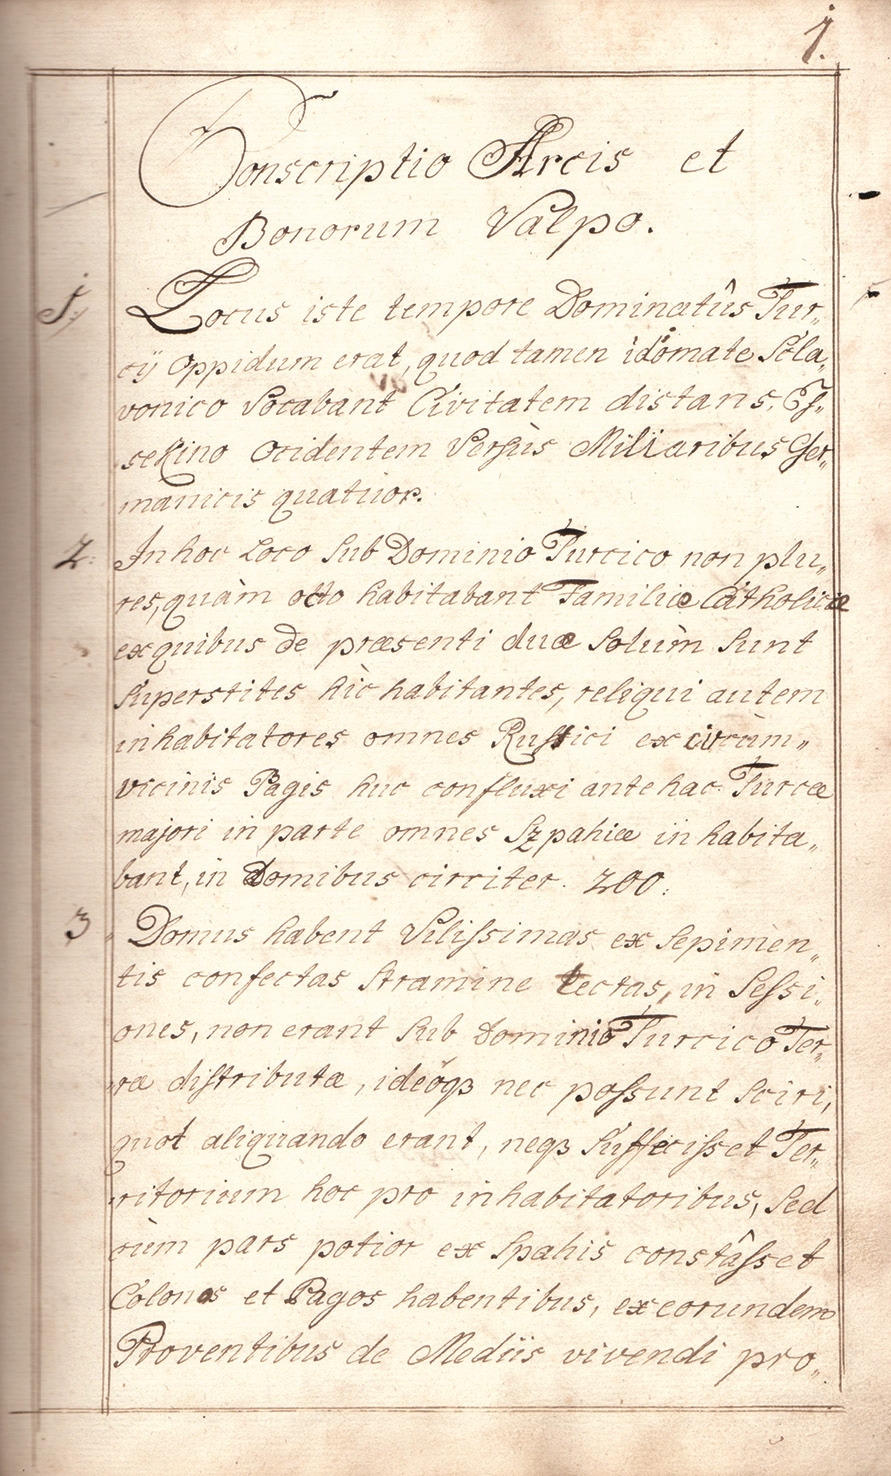 1.
Conscriptio Arcis et
Bonorum Valpo.
1. Locus iste tempore Dominatûs Tur„
cÿ oppidum erat, quod tamen idiomate Scla„
vonico Vocabant Civitatem distans Es„
sekino Occidentem Versùs Milliaribus Ger„
manicis quatuor.
2. In hoc Loco Sub Dominio Turcico non plu„
res, quàm octo habitabant Familiæ Catholicæ
ex quibus de præsenti duæ Solùm Sunt
Superstites hìc habitantes, reliqui autem
inhabitatores omnes Rustici ex circùm„
vicinis Pagis huc confluxi ante hac Turcæ
majori in parte omnes Szpahiæ inhabita„
bant, in Domibus circiter 200.
3 Domus habent Vilissimas ex Sepimen„
tis confectas Stramine tectas, in Sessi„
ones, non erant Sub Dominio Turcico Ter„
ræ distributæ, ideoqꝫ nec possunt Sciri,
quot aliquando erant, neqꝫ Suffecisset Ter„
ritorium hoc pro inhabitatoribus, Sed
cùm pars potior ex Spahis constâsset
Colonos et Pagos habentibus, ex eorundem
Proventibus de Mediis vivendi pro„